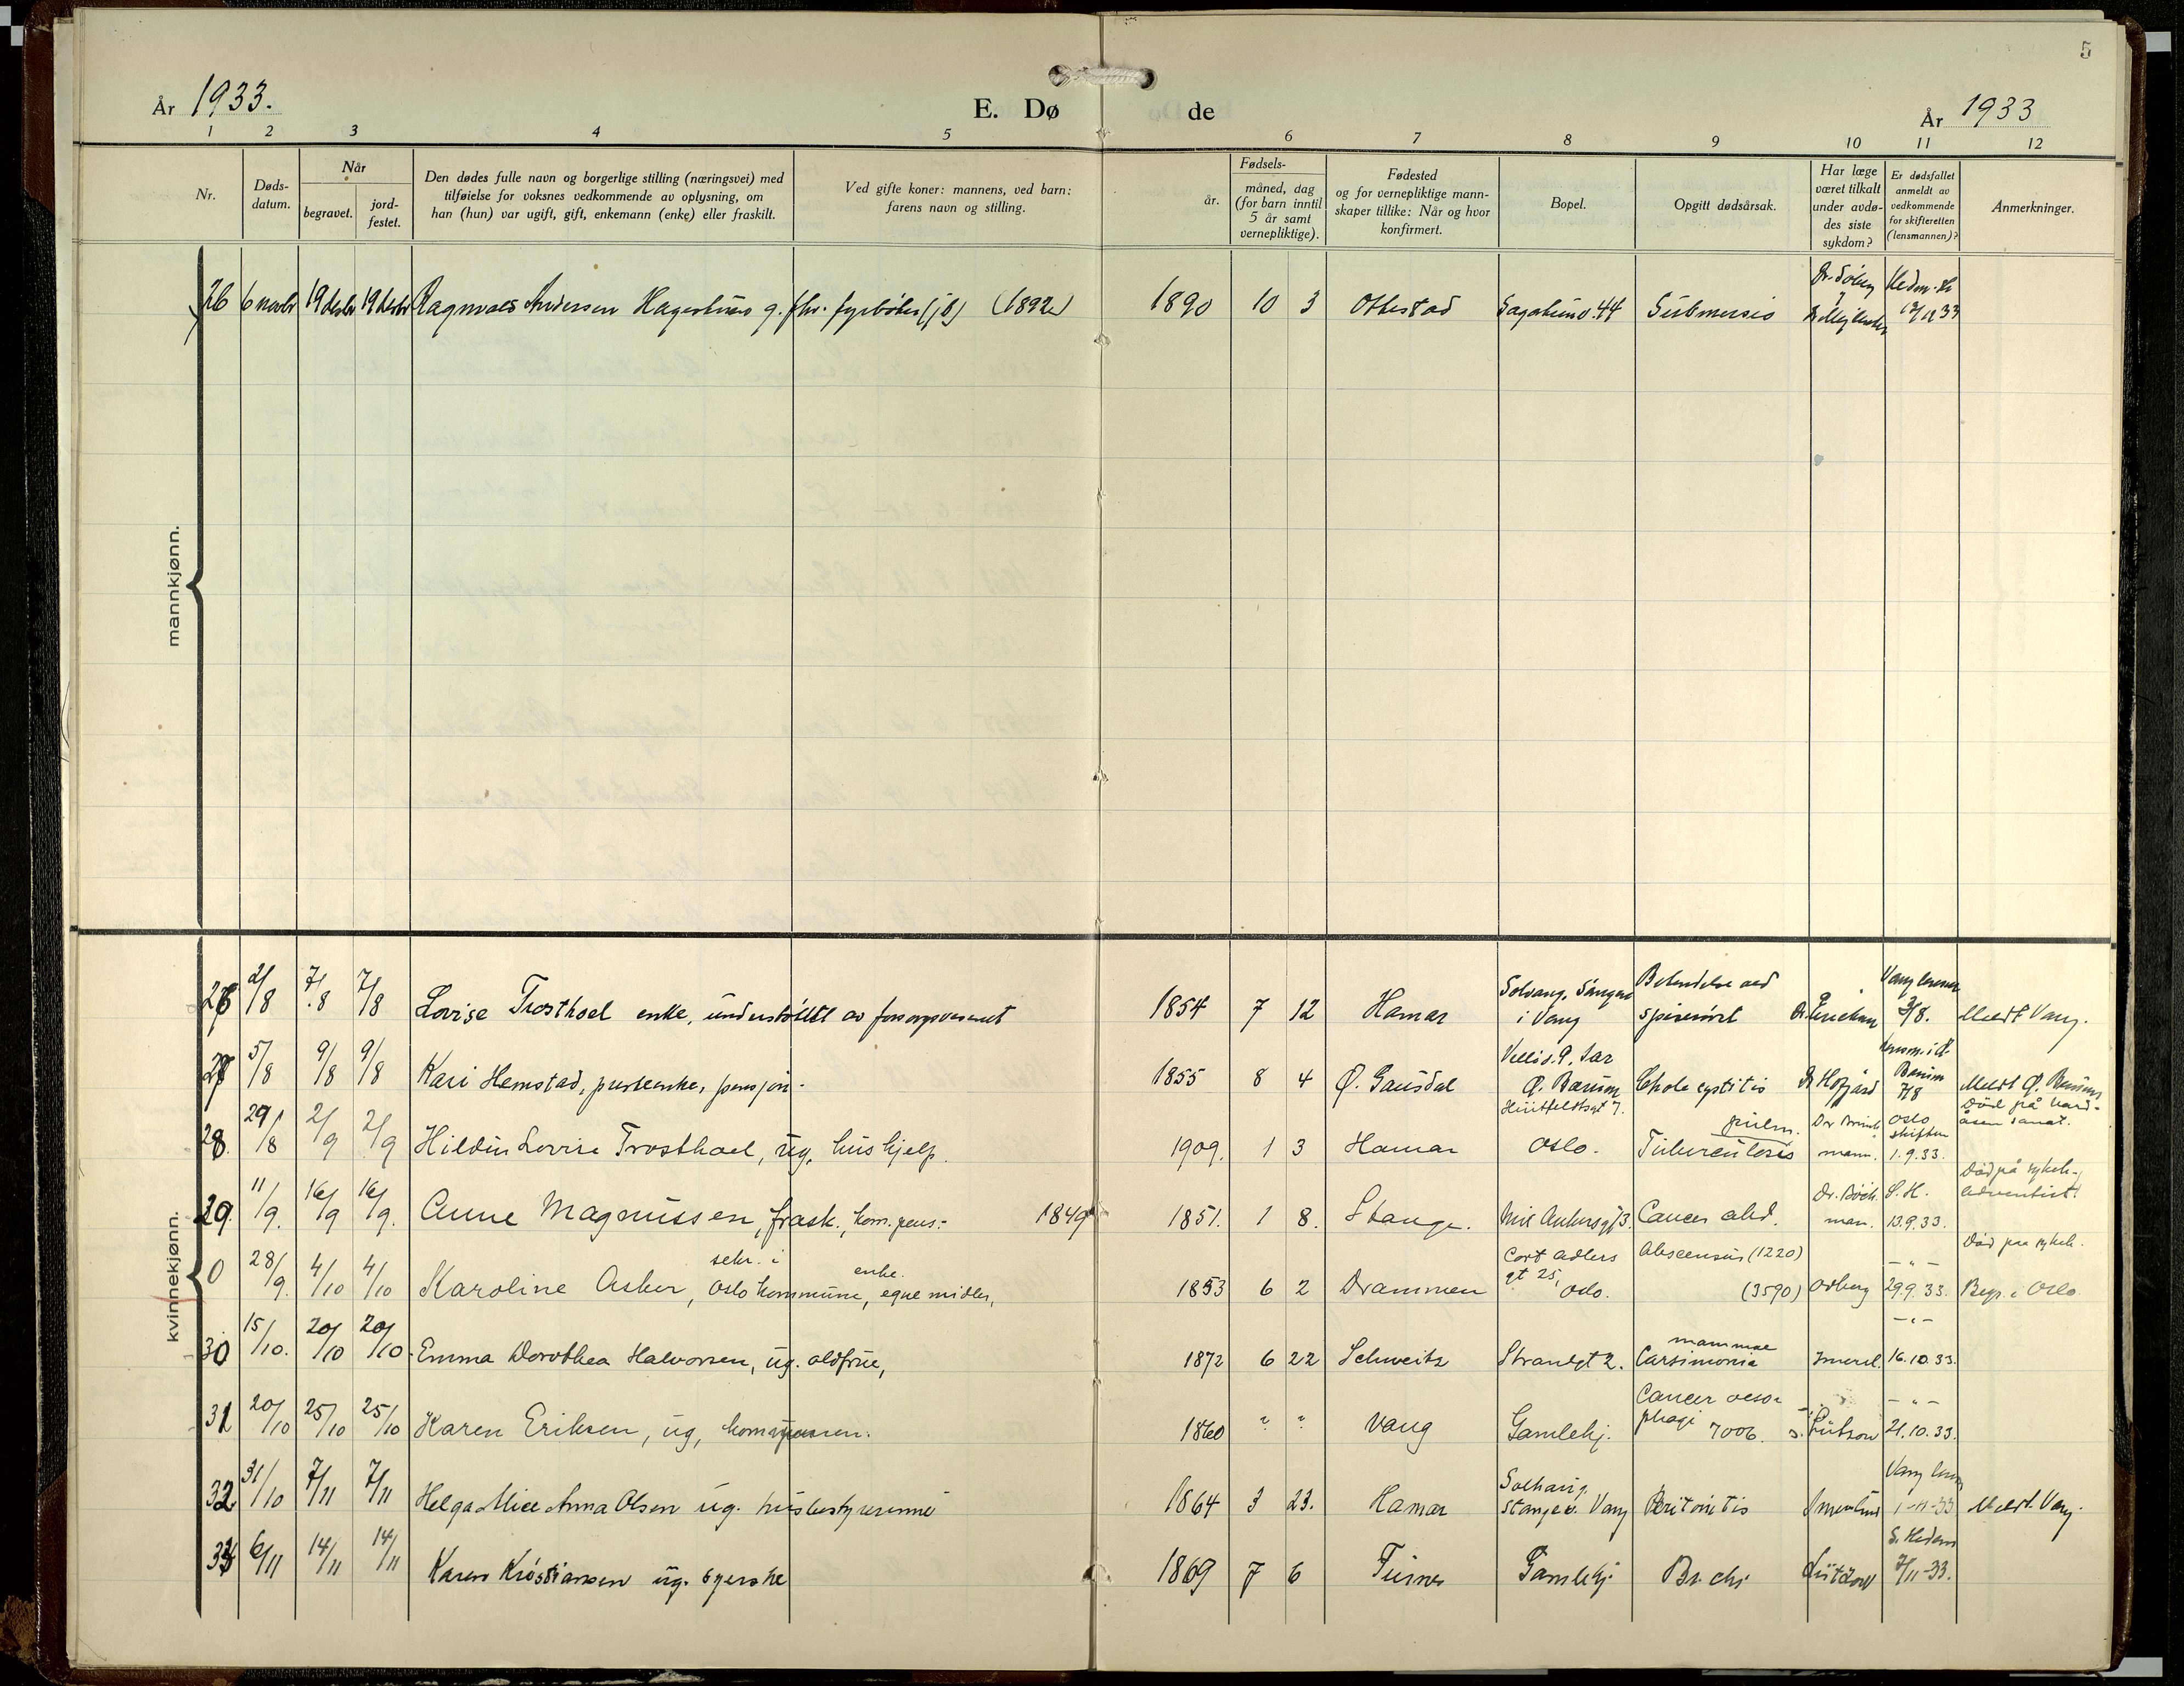 5
År 1933.
E. Dø de
År 1933
1 2 3 4 5 6 7 8 9 10 11 12
Nr.
Døds-
datum.
Når
begravet.
jord-
festet.
Den dødes fulle navn og borgerlige stilling (næringsvei) med
tilføielse for voksnes vedkommende av oplysning, om
han (hun) var ugift, gift, enkemann (enke) eller fraskilt.
Ved gifte koner: mannens, ved barn:
farens navn og stilling.
Fødsels-
år.
måned, dag
(for barn inntil
5 år samt
vernepliktige).
Fødested
og for vernepliktige mann-
skaper tillike: Når og hvor
konfirmert.
Bopel.
Opgitt dødsårsak.
Har læge
været tilkalt
under avdø-
des siste
sykdom?
Er dødsfallet
anmeldt av
vedkommende
for skifteretten
(lensmannen)?
Anmerkninger.
mannkjønn.
26 6 novbr 19 desbr 19 desbr Ragnvald Andersen g. fhv. fyrbøter (jb) (1892) 1890 10 3 Ottestad 44 Submersio
12/12 33
kvinnekjønn.
26 2/8 7/8 7/8 Lovise Trosthoel enke, understøttet av forsorgsvesenet 1854 7 12 Hamar Solvang,
i Vang
spiserøret 3/8. Meldt Vang.
27 5/8 9/8 9/8 Kari Hemstad, presteenke, pensjon. 1855 8 4 Ø. Gausdal
Ø. Bærum Cholecystitis 7/8 Meldt Ø. Bærum
28. 29/8 2/9 2/9 Hildur Lovise Trosthoel, ug. hushjelp. 1909. 1 3 Hamar
Huitfeldtsgt 7.
Oslo. Tuberculosis
pulm. Dr. Brink
mann.
Oslo
skifter
1.9.33.
Død på Vard-
åsen sanat.
29. 11/9. 16/9 16/9. Anne Magnussen, frask., kom. pens.- 1849 1851. 1 8. Stange. Cancer abd. Dr. Bøck-
man.
S. H.
13.9.33.
Død på sykeh.,
adventist!
0 28/9. 4/10 4/10 Karoline Asker, sekr. i
Oslo kommune, enke.
egne midler, 1853 6 2 Drammen Cort Adlers
gt 25,
Oslo. Abscensus (1220)
(3590) Odberg - „ -
29.9.33. Død paa sykeh.
Begr. i Oslo
30 15/10. 20/10 20/10. Emma Dorothea Halvorsen, ug. oldfrue, 1872 6 22 Schweitz Strandgt 2. mammae
Carsimonia - „ -
16.10.33.
31 20/10 25/10 25/10 Karen Eriksen, ug, 1860 ? ? Vang Gamlehj. Cancer oeso-
phagi 7006. - „ -
21.10.33.
32 31/10 7/11 7/11 Helga Alice Anna Olsen ug. husbestyrerinne 1864 3 23. Hamar
Stangev. Vang Peritonitis 1-11-33 Meldt. Vang.
33 6/11 14/11 14/11 Karen Kristiansen ug. syerske 1869 7 6 Furnes Gamlehj Br. chr. Lützow S. Hedem
7/11-33.